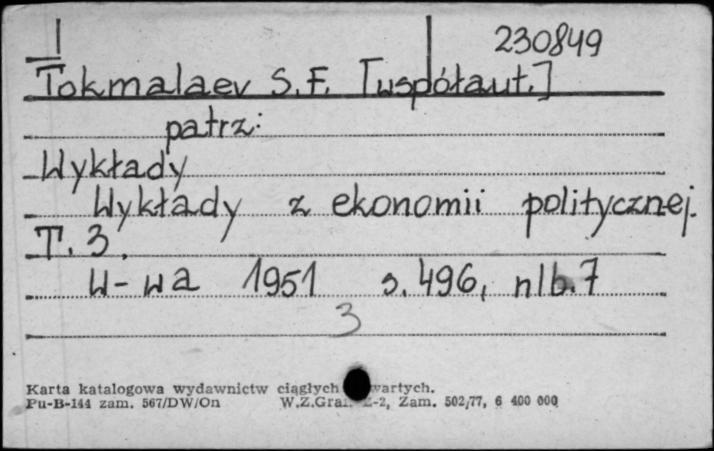 I 230849
Tokmalaev S.F. [współaut.]
patrz:
Wykłady
Wykłady z ekonomii politycznej.
T. 3.
W-wa 1951 s. 496, nlb. 7
3
Karta katalogowa wydawnictw ciągłych
Pu-B-144 zam. 567/DW/On W.Z.Graf. Z-2, Zam. 502/77, 6 400 000